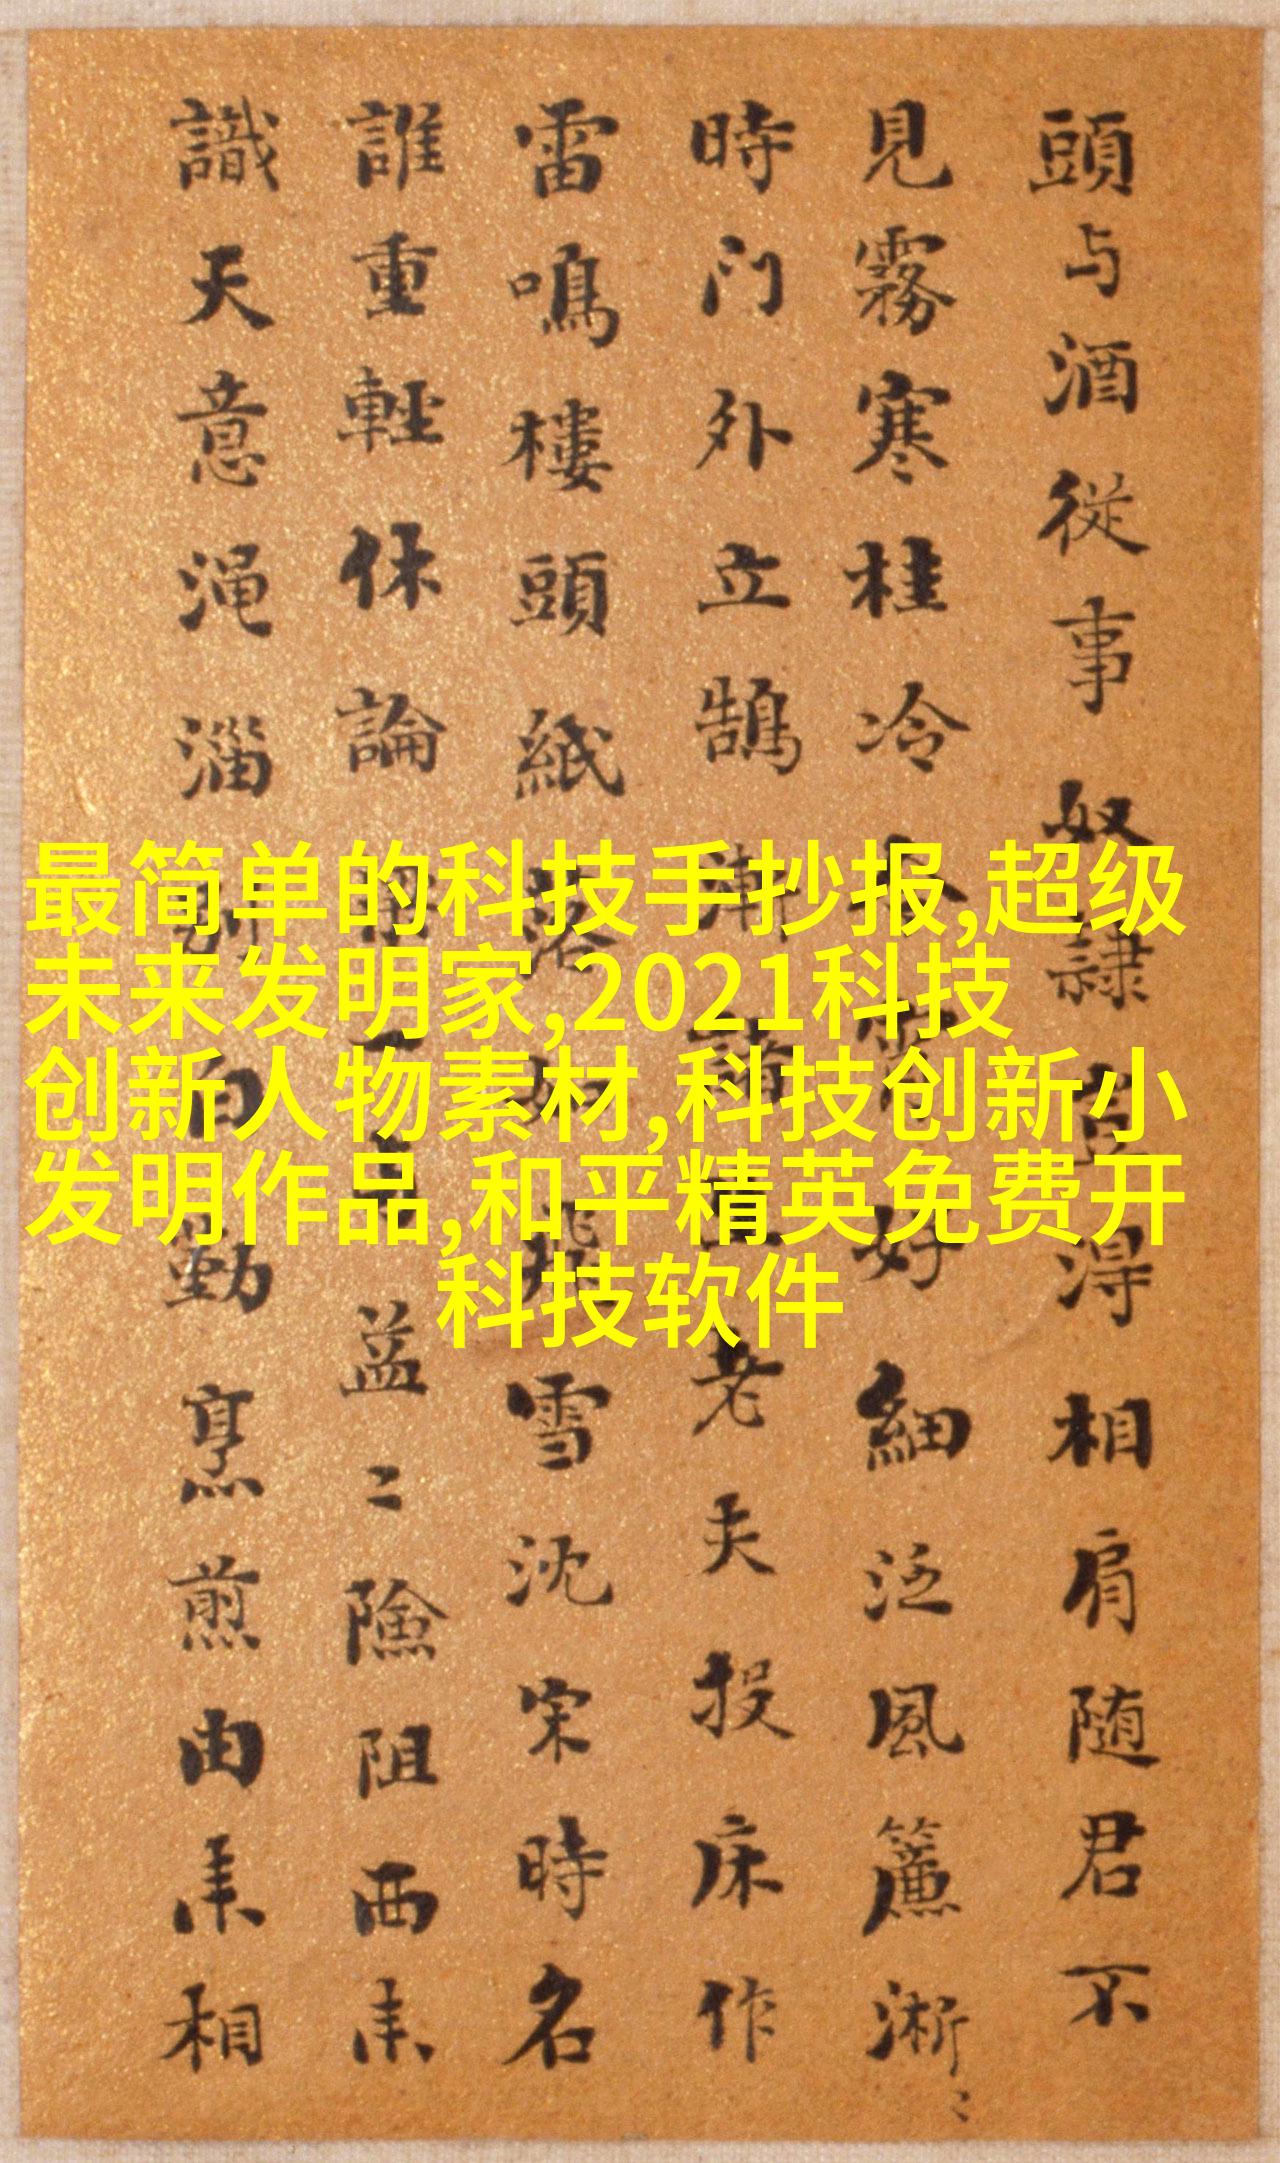 最简单的科技手抄报,超级
未来发明家,2021科技
创新人物素材,科技创新小
发明作品,和平精英免费开
科技软件
頭与酒從事奴隷得相肩随君不
見霧寒桂冷好細泛風簾淅〻
時门外立鵠漸諸老夫投床作
雷鳴樓頭紙落如飛雪沈宋時名
誰重輕休論益〻險阻西来
識天意渑淄別白勤烹煎由来相